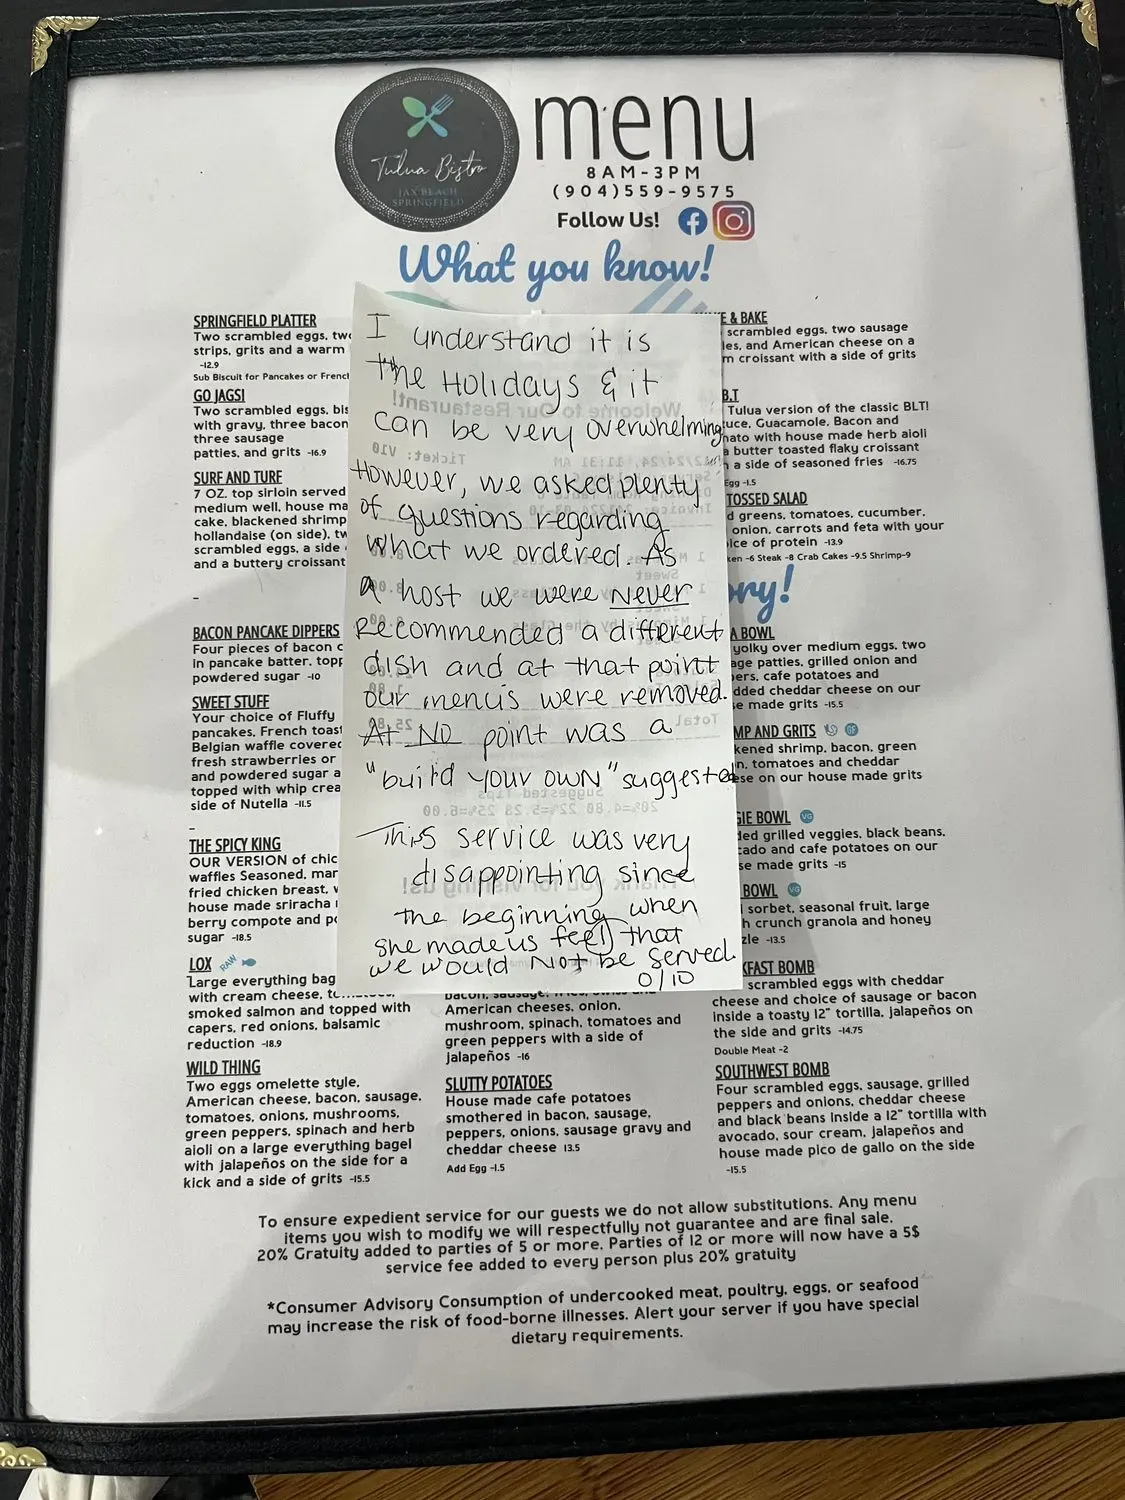 menu
8AM-3PM
(904)559-9575
Follow Us!
Tulua Bistro
JAX BEACH
SPRINGFIELD
What you know!
SPRINGFIELD PLATTER
Two scrambled eggs, two
strips, grits and a warm
-12.9
Sub Biscuit for Pancakes or French
GO JAGS!
Two scrambled eggs,
with gravy, three bacon
three sausage
patties, and grits -16.9
SURF AND TURF
7 OZ. top sirloin served
medium well, house
cake, blackened shrimp
hollandaise (on side),
scrambled eggs, a side
and a buttery croissant
-
BACON PANCAKE DIPPERS
Four pieces of bacon
in pancake batter,
powdered sugar -10
SWEET STUFF
Your choice of Fluffy
pancakes, French toast
Belgian waffle covered
fresh strawberries or
and powdered sugar a
topped with whip
side of Nutella -11.5
-
THE SPICY KING
OUR VERSION of
waffles Seasoned,
fried chicken breast,
house made sriracha
berry compote and
sugar -18.5
LOX RAW
Large everything
with cream cheese,
smoked salmon and topped with
capers, red onions, balsamic
reduction -18.9
WILD THING
Two eggs omelette style,
American cheese, bacon, sausage,
tomatoes, onions, mushrooms,
green peppers, spinach and herb
aioli on a large everything bagel
with jalapeños on the side for a
kick and a side of grits -15.5
I understand it is
the Holidays & it
can be very overwhelming
However, we asked plenty
of questions regarding
what we ordered. As
A host we were Never
recommended a different
dish and at that point
our menus were removed.
At NO point was a
"build your own" suggested
This service was very
disappointing since
the beginning when
she made us feel that
we would NOT be served.
0/10
bacon, sausage,
American cheeses, onion,
mushroom, spinach, tomatoes and
green peppers with a side of
jalapeños -16
SLUTTY POTATOES
House made cafe potatoes
smothered in bacon, sausage,
peppers, onions, sausage gravy and
cheddar cheese 13.5
Add Egg -1.5
& BAKE
scrambled eggs, two sausage
and American cheese on a
croissant with a side of grits
B.T
Tulua version of the classic BLT!
Guacamole, Bacon and
with house made herb aioli
butter toasted flaky croissant
a side of seasoned fries -16.75
Egg -1.5
TOSSED SALAD
greens, tomatoes, cucumber,
onion, carrots and feta with your
of protein -13.9
-6 Steak -8 Crab Cakes -9.5 Shrimp-9
BOWL
yolky over medium eggs, two
patties, grilled onion and
cafe potatoes and
cheddar cheese on our
made grits -15.5
AND GRITS GF
shrimp, bacon, green
tomatoes and cheddar
on our house made grits
BOWL VG
grilled veggies, black beans,
and cafe potatoes on our
made grits -15
BOWL VG
sorbet, seasonal fruit, large
crunch granola and honey
-13.5
BOMB
scrambled eggs with cheddar
cheese and choice of sausage or bacon
inside a toasty 12" tortilla, jalapeños on
the side and grits -14.75
Double Meat -2
SOUTHWEST BOMB
Four scrambled eggs, sausage, grilled
peppers and onions, cheddar cheese
and black beans inside a 12" tortilla with
avocado, sour cream, jalapeños and
house made pico de gallo on the side
-15.5
To ensure expedient service for our guests we do not allow substitutions. Any menu
items you wish to modify we will respectfully not guarantee and are final sale.
20% Gratuity added to parties of 5 or more. Parties of 12 or more will now have a 5$
service fee added to every person plus 20% gratuity
*Consumer Advisory Consumption of undercooked meat, poultry, eggs, or seafood
may increase the risk of food-borne illnesses. Alert your server if you have special
dietary requirements.